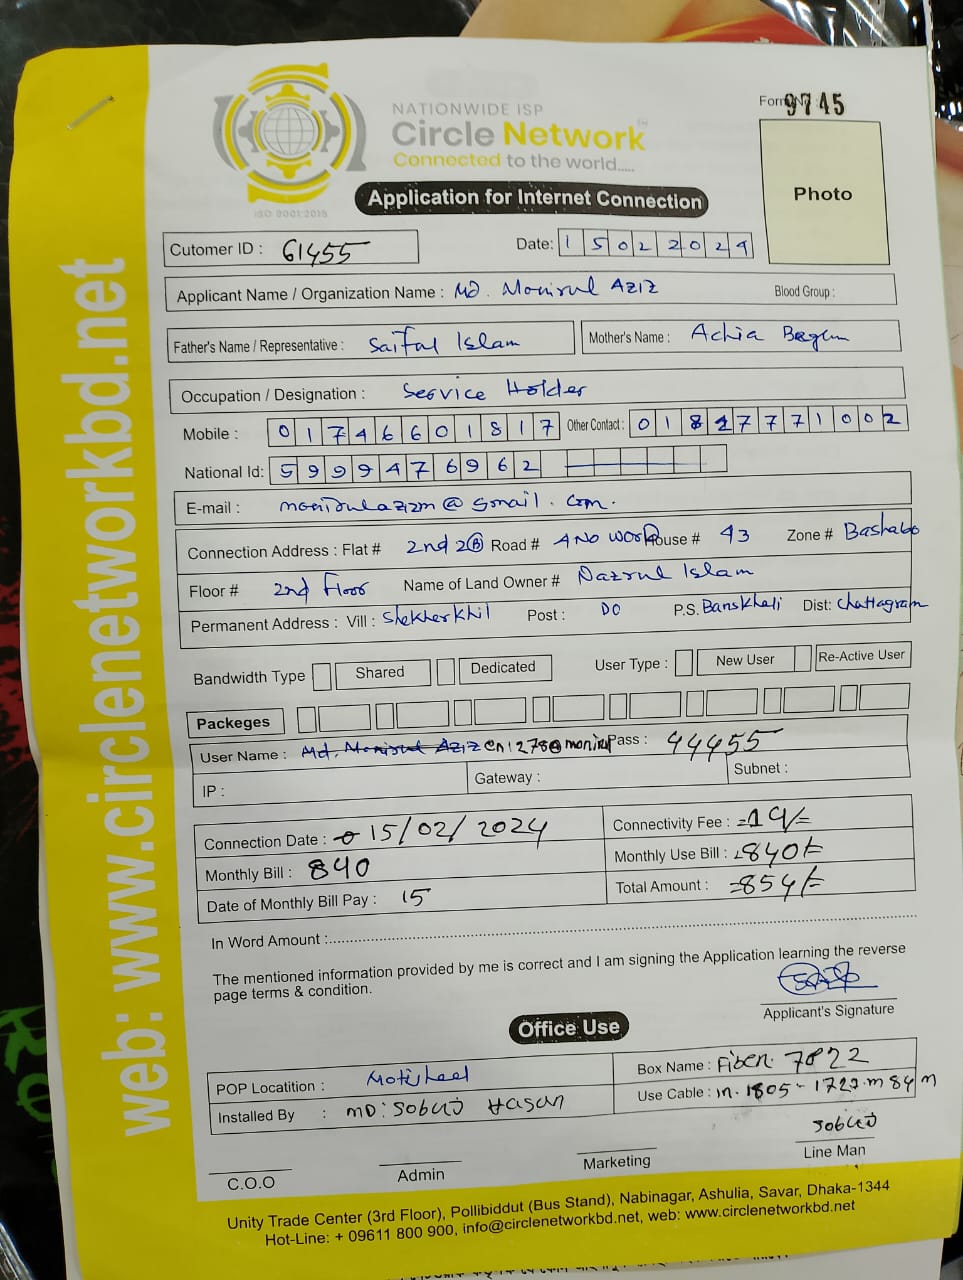 NATIONWIDE ISP
Circle Network™
Connected to the world.....
ISO 9001:2015
Form No : 9745
Photo
Application for Internet Connection
Cutomer ID : 61455
Date: 15022024
Applicant Name / Organization Name : MD. Monirul Aziz Blood Group :
Father's Name / Representative : Saiful Islam Mother's Name : Achia Begum
Occupation / Designation : Service Holder
Mobile : 01746601817 Other Contact : 01817771002
National Id: 5999476962
E-mail : monirulazizm@gmail.com.
Connection Address : Flat # 2nd 2B Road # 4 No Word House # 43 Zone # Bashabo
Floor # 2nd Floor Name of Land Owner # Nazrul Islam
Permanent Address : Vill : Shekherkhil Post : DO P.S. Banskhali Dist: Chattagram
Bandwidth Type Shared Dedicated User Type : New User Re-Active User
Packeges
User Name : Md. Monirul Aziz cn1278@monirul Pass : 44455
IP : Gateway : Subnet :
Connection Date : 15/02/2024 Connectivity Fee :
Monthly Bill : 840 Monthly Use Bill : =840/=
Date of Monthly Bill Pay : 15 Total Amount : =854/=
In Word Amount :
The mentioned information provided by me is correct and I am signing the Application learning the reverse
page terms & condition.
Applicant's Signature
Office Use
POP Locatition : Motijheel Box Name : Fiber. 7822
Installed By : MD: Sobuj Hasan Use Cable : in. 1805 - 1727.m 84 m
Sobuj
C.O.O Admin Marketing Line Man
Unity Trade Center (3rd Floor), Pollibiddut (Bus Stand), Nabinagar, Ashulia, Savar, Dhaka-1344
Hot-Line: + 09611 800 900, info@circlenetworkbd.net, web: www.circlenetworkbd.net
web: www.circlenetworkbd.net